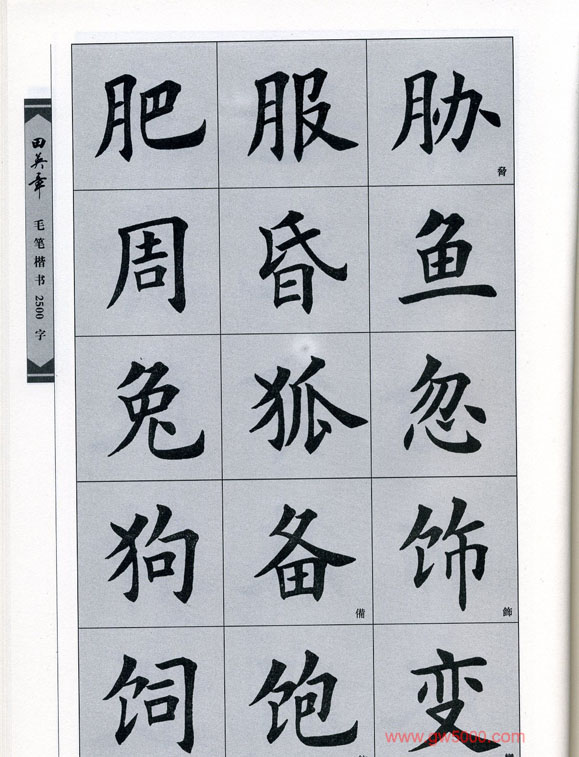 田英章 毛笔楷书 2500 字
肥 服 胁 脅
周 昏 鱼
兔 狐 忽
狗 备 備 饰 飾
饲 饱 变
www.gw5000.com